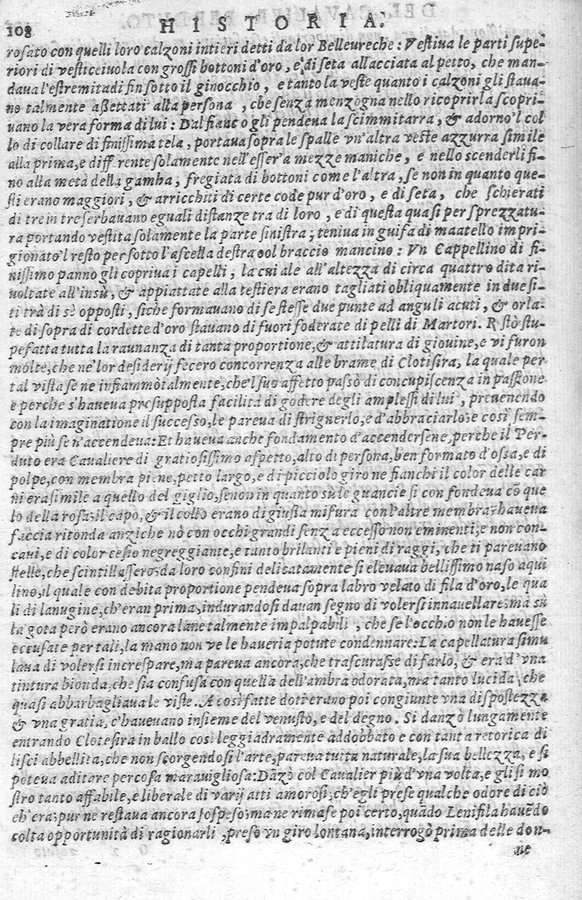 108 HISTORIA.
rosato con quelli loro calzoni intieri detti da lor Belleureche: Vestiua le parti supe-
riori di vesticeiuola con grossi bottoni d'oro, e di seta allacciata al petto, che man-
daua l'estremita di fin sotto il ginocchio, e tanto la veste quanto i calzoni gli staua-
no talmente aßettati alla persona, che senza menzogna nello ricoprirla scopri-
uano la vera forma di lui: Dal fianco gli pendeua la scimmitarra, & adorno'l col
lo di collare di finissima tela, portaua sopra le spalle vn'altra veste azzurra simile
alla prima, e diff rente solamente nell'esser'a mezze maniche, e nello scenderli fi-
no alla metà della gamba, fregiata di bottoni come l'altra, se non in quanto que-
sti erano maggiori, & arricchiti di certe code pur d'oro, e di seta, che schierati
di tre in tre serbauano eguali distanze tra di loro, e di questa quasi per sprezzatu-
ra portando vestita solamente la parte sinistra; teniua in guisa di maatello impri-
gionato'l resto per sotto l'ascella destra col braccio mancino: Vn Cappellino di fi-
nissimo panno gli copriua i capelli, la cui ale all'altezza di circa quattro dita ri-
uoltate all'insù, & appiattate alla testiera erano tagliati obliquamente in due si-
ti trà di sè opposti, siche formauano di se stesse due punte ad anguli acuti, & orla-
te di sopra di cordette d'oro stauano di fuori foderate di pelli di Martori. R stò stu-
pefatta tutta la raunanza di tanta proportione, & attilatura di giouine, e vi furon
molte, che ne' lor desiderij fecero concorrenza alle brame di Clotisira, la quale per
tal vista se ne infiammò talmente, che'l suo affetto passò di concupiscenza in passione
e perche s'haueua presupposta facilità di godere degli amplessi di lui, preuenendo
con la imaginatione il successo, le pareua di strignerlo, e d'abbraciarlo: e così sem-
pre più se n'accendeua: Et haueua anche fondamento d'accendersene, perche il Per-
duto era Caualiere di gratiosissimo aspetto, alto di persona, ben formato d'ossa, e di
polpe, con membra piene, petto largo, e di picciolo giro ne fianchi il color delle car
ni era simile a quello del giglio, senon in quanto sù le guancie si con fondeua cō que
lo della rosa: il capo, & il collo erano di giusta misura con l'altre membra; haueua
faccia ritonda anziche nò con occhi grandi senza eccesso non eminenti, e non con-
caui, e di color cesio negreggiante, e tanto brilanti e pieni di raggi, che ti pareuano
stelle, che scintillassero: da loro confini delicatamente si eleuaua bellissimo naso aqui
lino, il quale con debita proportione pendeua sopra labro velato di fila d'oro, le qua
li di lanugine, ch'eran prima, indurandosi dauan segno di volersi innauellare: ma sù
la gota però erano ancora lane talmente impalpabili, che se l'occhio non le hauesse
accusate per tali, la mano non ve le haueria potute condennare: La capellatura simu
laua di volersi increspare, ma pareua ancora, che trascurasse di farlo, & era d'vna
tintura bionda, che sia confusa con quella dell'ambra odorata, ma tanto lucida, che
quasi abbarbagliaua le viste. A così fatte doti erano poi congiunte vna dispostezza
& vna gratia, c'haueuano insieme del venusto, e del degno. Si danzò lungamente
entrando Clotesira in ballo così leggiadramente addobbato e con tanta retorica di
lisci abbellita, che non scorgendosi l'arte, pareua tutta naturale, la sua bellezza, e si
poteua aditare per cosa marauigliosa: Dāzò col Caualier più d'vna volta, e gli si mo
strò tanto affabile, e liberale di varij atti amorosi, ch'egli prese qualche odore di ciò
ch'era; pur ne restaua ancora sospeso: ma ne rimase poi certo, quādo Lenifila hauēdo
colta opportunità di ragionarli, preso vn giro lontana, interrogò prima delle don-
ne